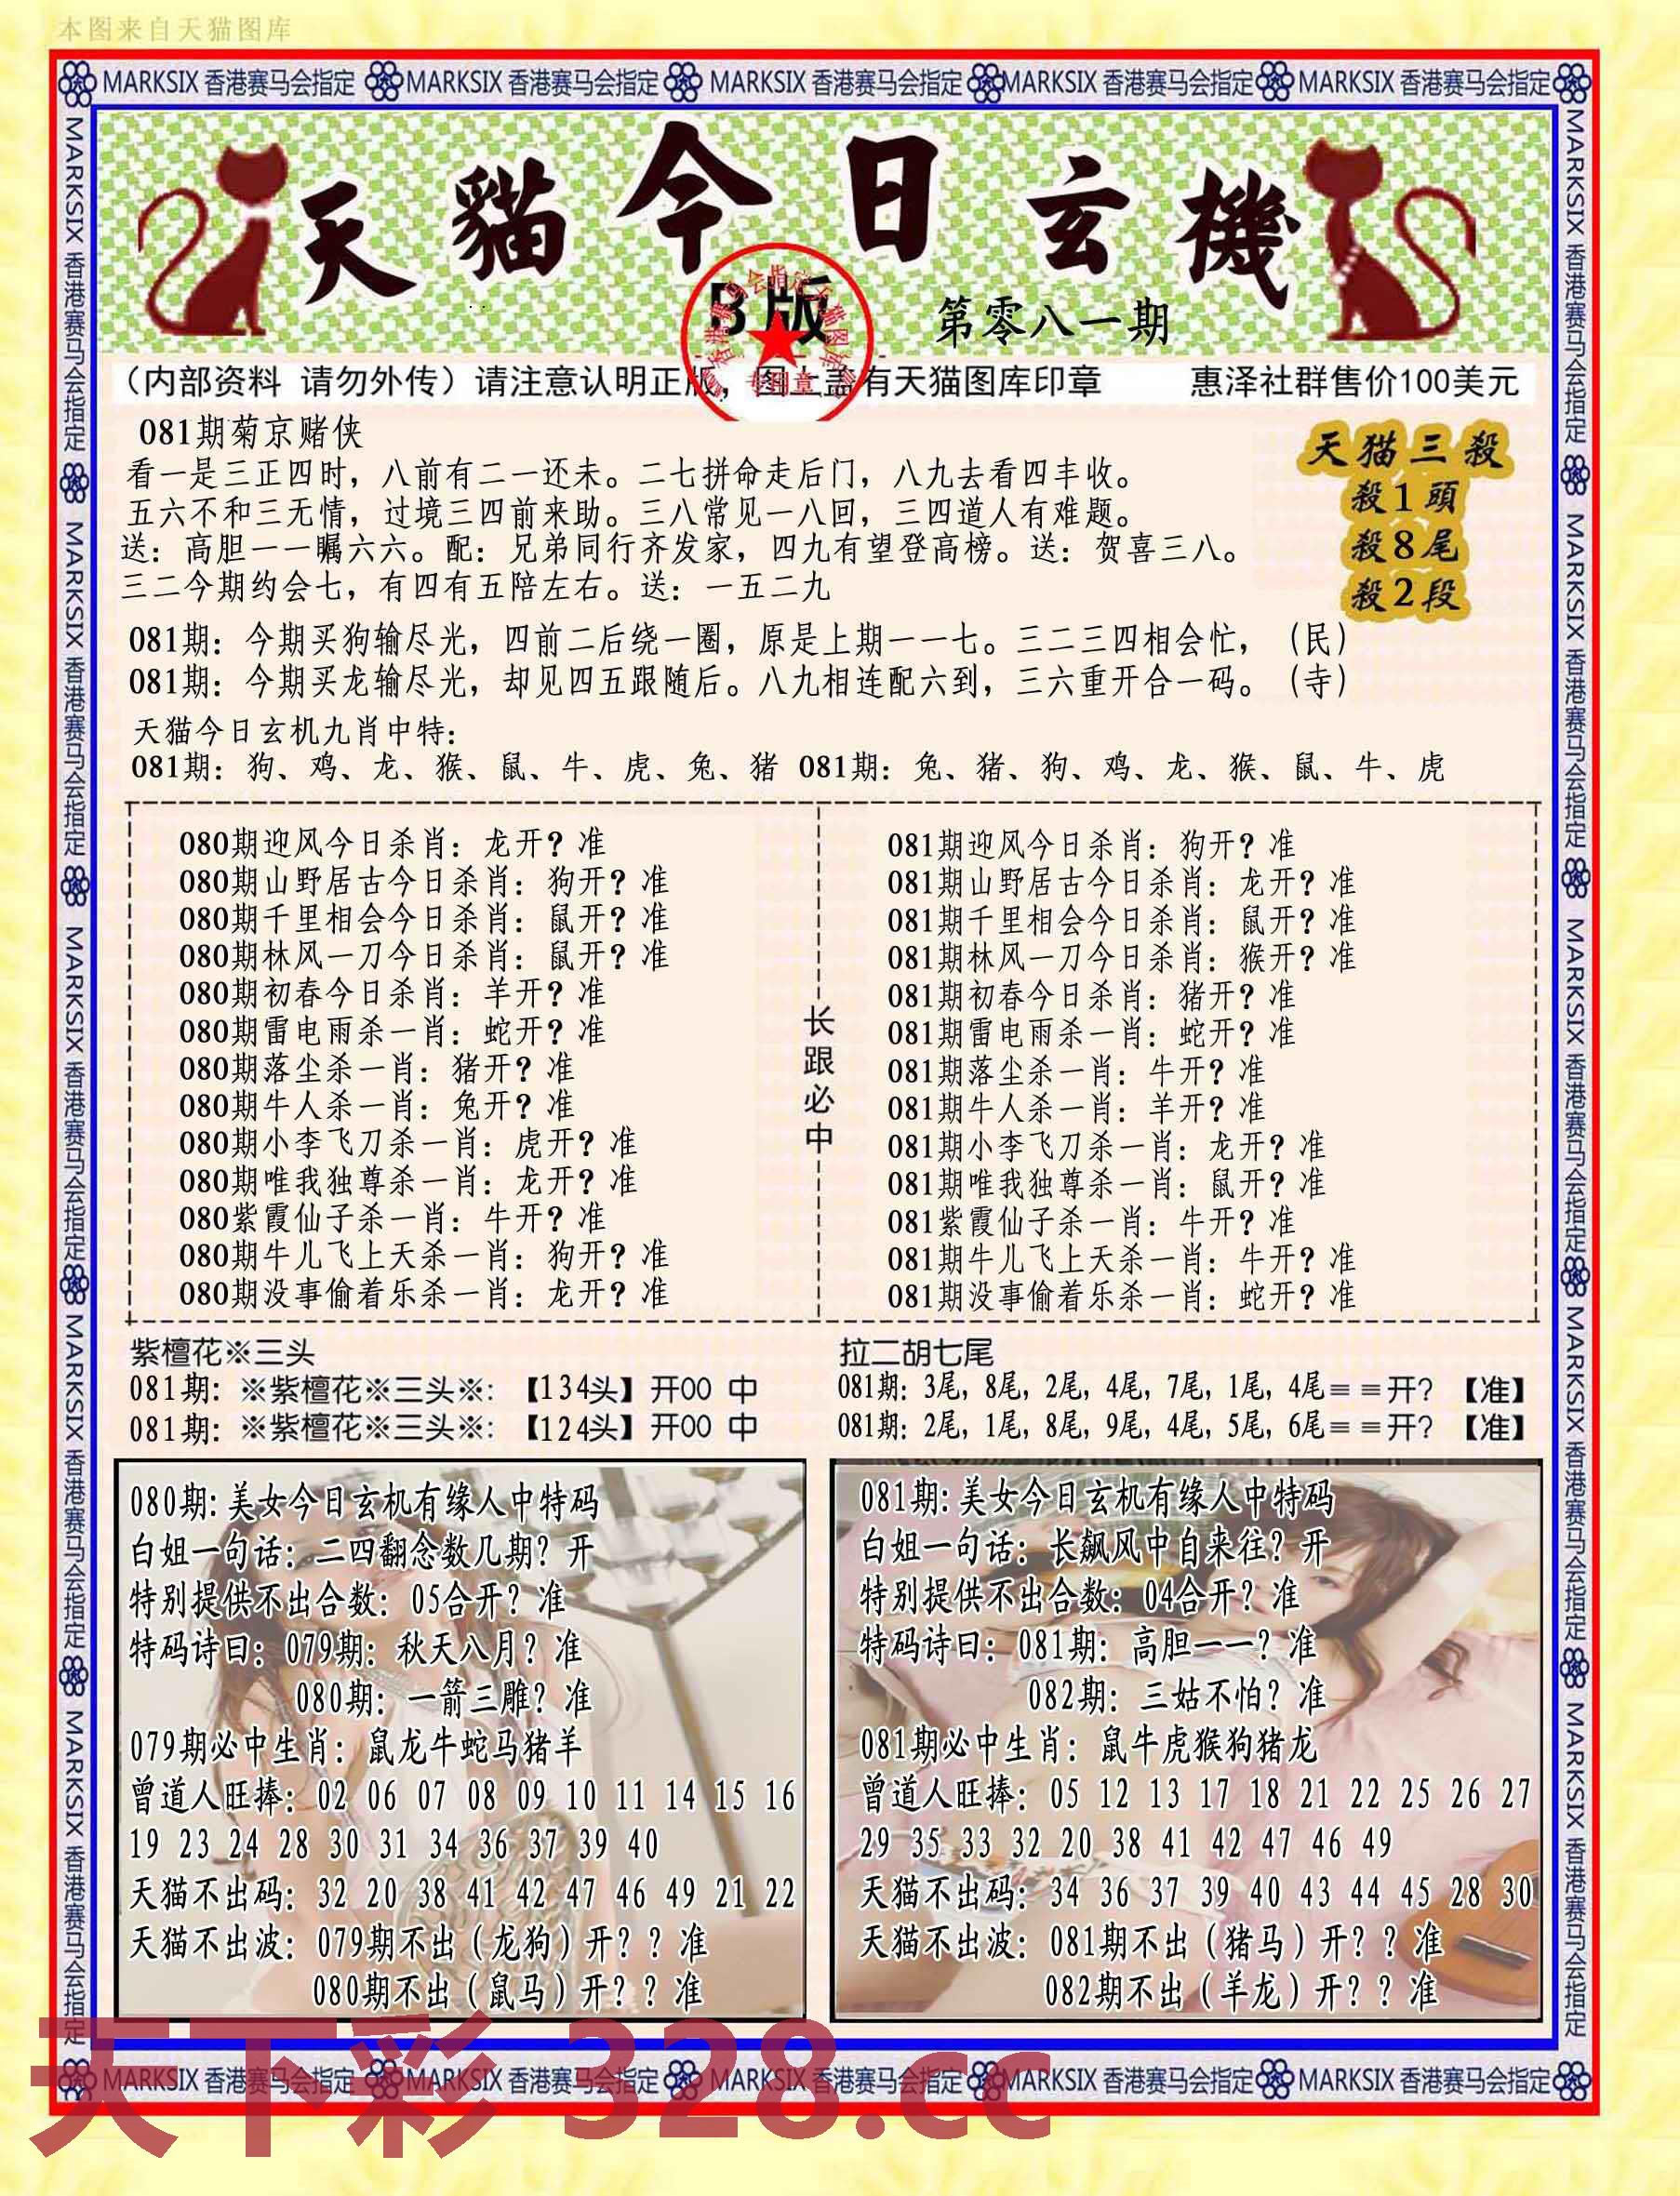 本图来自天猫图库
MARKSIX 香港赛马会指定 MARKSIX 香港赛马会指定 MARKSIX 香港赛马会指定 MARKSIX 香港赛马会指定 MARKSIX 香港赛马会指定
天貓今日玄機
B版
第零八一期
香港赛马会指定天猫图库
专用章
（内部资料 请勿外传）请注意认明正版，图上盖有天猫图库印章 惠泽社群售价100美元
081期菊京赌侠
看一是三正四时，八前有二一还未。二七拼命走后门，八九去看四丰收。
五六不和三无情，过境三四前来助。三八常见一八回，三四道人有难题。
送：高胆一一瞩六六。配：兄弟同行齐发家，四九有望登高榜。送：贺喜三八。
三二今期约会七，有四有五陪左右。送：一五二九
天猫三殺
殺1頭
殺8尾
殺2段
081期：今期买狗输尽光，四前二后绕一圈，原是上期一一七。三二三四相会忙，（民）
081期：今期买龙输尽光，却见四五跟随后。八九相连配六到，三六重开合一码。（寺）
天猫今日玄机九肖中特：
081期：狗、鸡、龙、猴、鼠、牛、虎、兔、猪 081期：兔、猪、狗、鸡、龙、猴、鼠、牛、虎
080期迎风今日杀肖：龙开？准
080期山野居古今日杀肖：狗开？准
080期千里相会今日杀肖：鼠开？准
080期林风一刀今日杀肖：鼠开？准
080期初春今日杀肖：羊开？准
080期雷电雨杀一肖：蛇开？准
080期落尘杀一肖：猪开？准
080期牛人杀一肖：兔开？准
080期小李飞刀杀一肖：虎开？准
080期唯我独尊杀一肖：龙开？准
080紫霞仙子杀一肖：牛开？准
080期牛儿飞上天杀一肖：狗开？准
080期没事偷着乐杀一肖：龙开？准
长跟必中
081期迎风今日杀肖：狗开？准
081期山野居古今日杀肖：龙开？准
081期千里相会今日杀肖：鼠开？准
081期林风一刀今日杀肖：猴开？准
081期初春今日杀肖：猪开？准
081期雷电雨杀一肖：蛇开？准
081期落尘杀一肖：牛开？准
081期牛人杀一肖：羊开？准
081期小李飞刀杀一肖：龙开？准
081期唯我独尊杀一肖：鼠开？准
081紫霞仙子杀一肖：牛开？准
081期牛儿飞上天杀一肖：牛开？准
081期没事偷着乐杀一肖：蛇开？准
紫檀花※三头
081期：※紫檀花※三头※：【134头】开00 中
081期：※紫檀花※三头※：【124头】开00 中
拉二胡七尾
081期：3尾，8尾，2尾，4尾，7尾，1尾，4尾＝＝开？【准】
081期：2尾，1尾，8尾，9尾，4尾，5尾，6尾＝＝开？【准】
080期：美女今日玄机有缘人中特码
白姐一句话：二四翻念数几期？开
特别提供不出合数：05合开？准
特码诗曰：079期：秋天八月？准
080期：一箭三雕？准
079期必中生肖：鼠龙牛蛇马猪羊
曾道人旺捧：02 06 07 08 09 10 11 14 15 16
19 23 24 28 30 31 34 36 37 39 40
天猫不出码：32 20 38 41 42 47 46 49 21 22
天猫不出波：079期不出（龙狗）开？？准
080期不出（鼠马）开？？准
081期：美女今日玄机有缘人中特码
白姐一句话：长飙风中自来往？开
特别提供不出合数：04合开？准
特码诗曰：081期：高胆一一？准
082期：三姑不怕？准
081期必中生肖：鼠牛虎猴狗猪龙
曾道人旺捧：05 12 13 17 18 21 22 25 26 27
29 35 33 32 20 38 41 42 47 46 49
天猫不出码：34 36 37 39 40 43 44 45 28 30
天猫不出波：081期不出（猪马）开？？准
082期不出（羊龙）开？？准
MARKSIX 香港赛马会指定 MARKSIX 香港赛马会指定 MARKSIX 香港赛马会指定 MARKSIX 香港赛马会指定 MARKSIX 香港赛马会指定
MARKSIX 香港赛马会指定 MARKSIX 香港赛马会指定 MARKSIX 香港赛马会指定 MARKSIX 香港赛马会指定 MARKSIX 香港赛马会指定
MARKSIX 香港赛马会指定 MARKSIX 香港赛马会指定 MARKSIX 香港赛马会指定 MARKSIX 香港赛马会指定 MARKSIX 香港赛马会指定
天下彩 328.cc